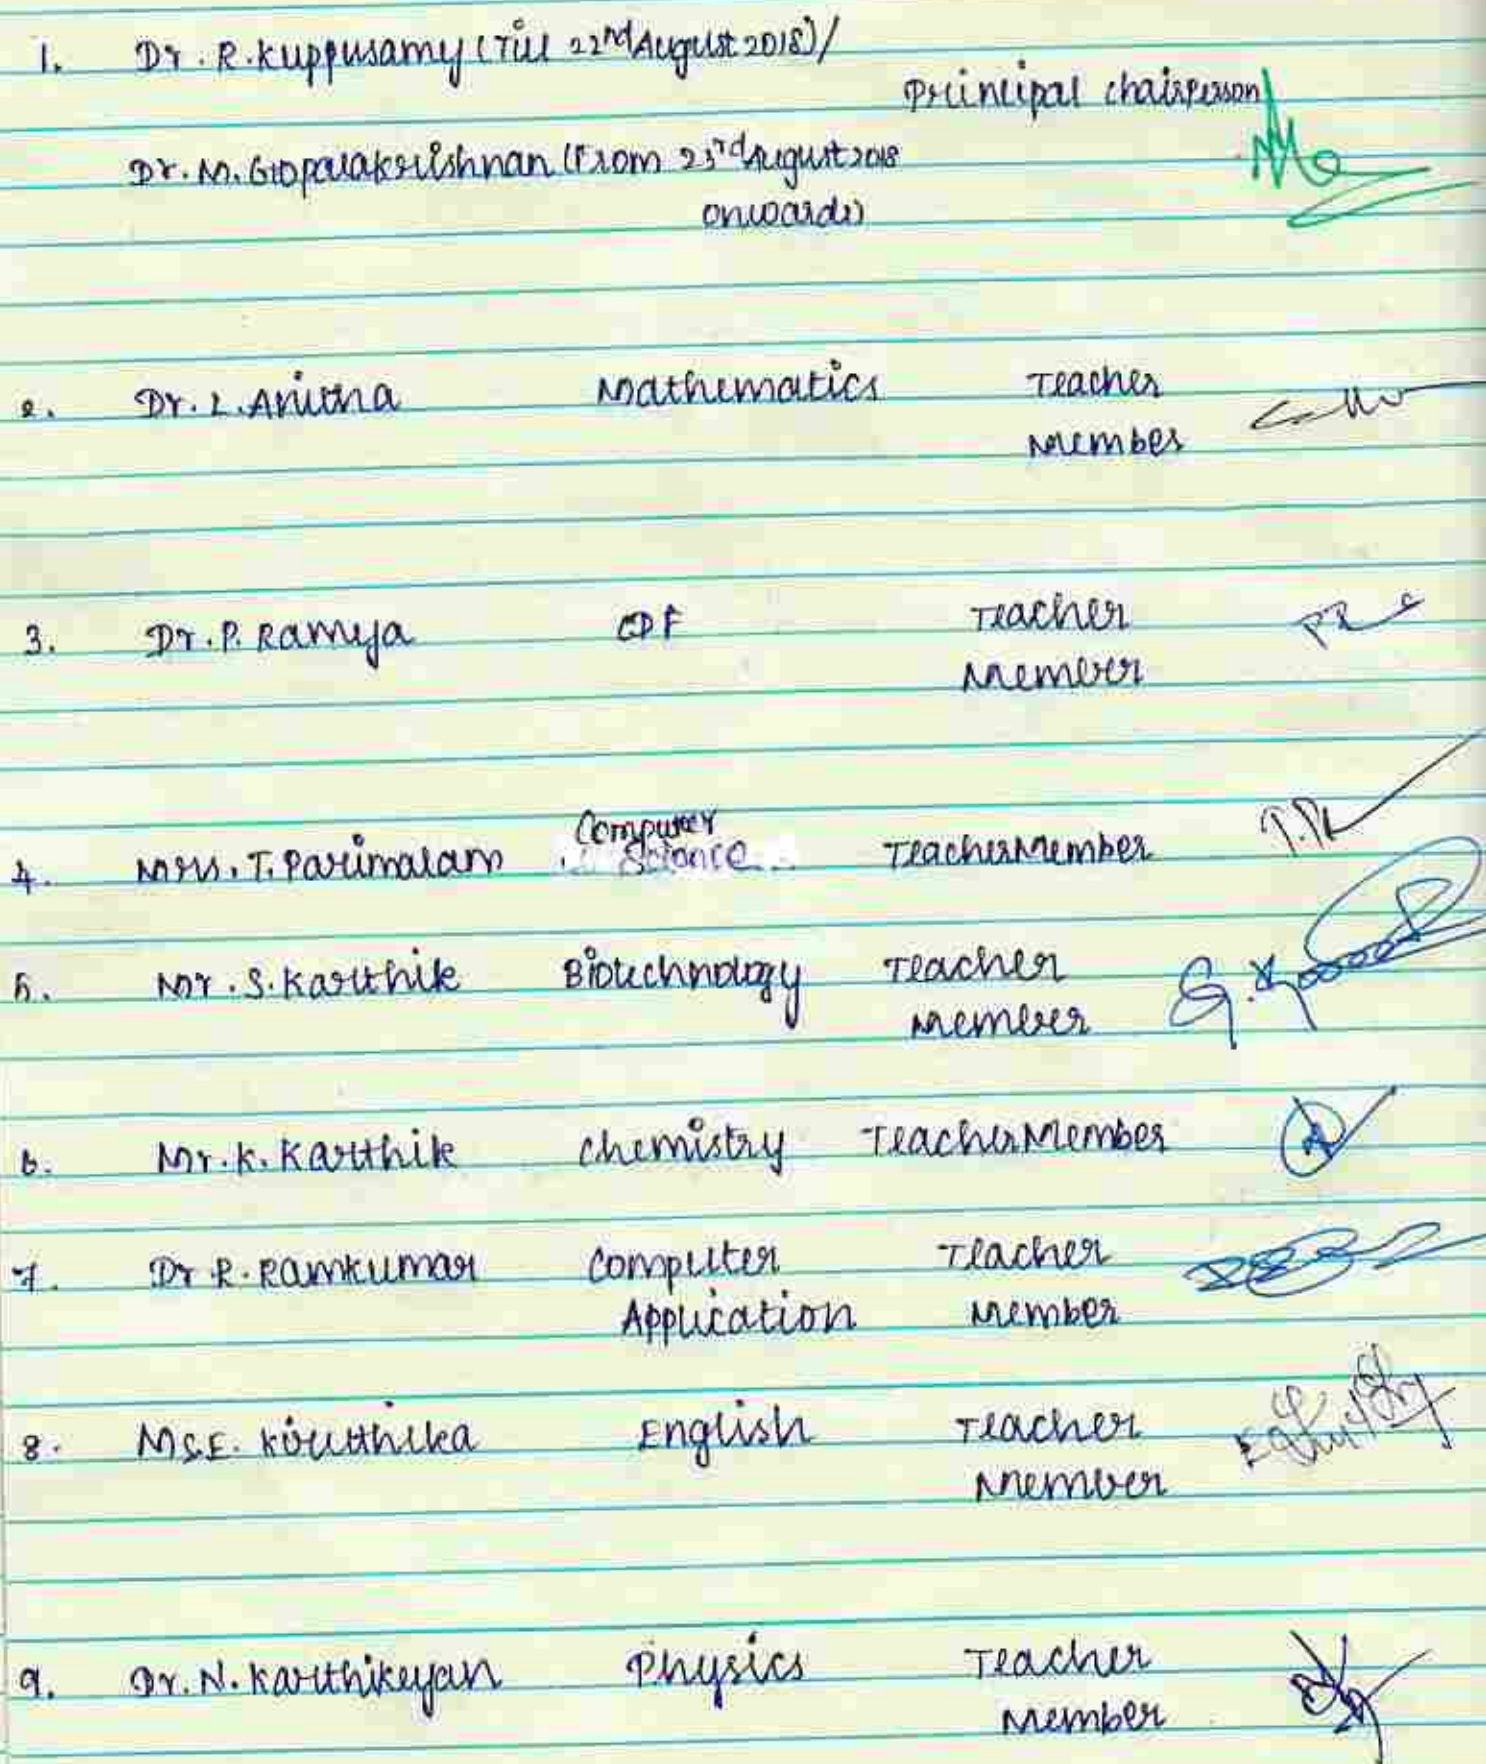 1. Dr. R. Kuppusamy (Till 22nd August 2018)/
Principal chairperson
Dr. M. Gopalakrishnan (From 23rd August 2018
onwards)
2. Dr. L. Anitha Mathematics Teacher
Member
3. Dr. P. Ramya CDF Teacher
Member
Computer
4. Mrs. T. Parimalam Science Teacher Member
5. Mr. S. Karthik Biotechnology Teacher
Member
6. Mr. K. Karthik Chemistry Teacher Member
7. Dr R. Ramkumar Computer Teacher
Application Member
8. Ms. E. Kiruthika English Teacher
Member
9. Dr. N. Karthikeyan Physics Teacher
Member